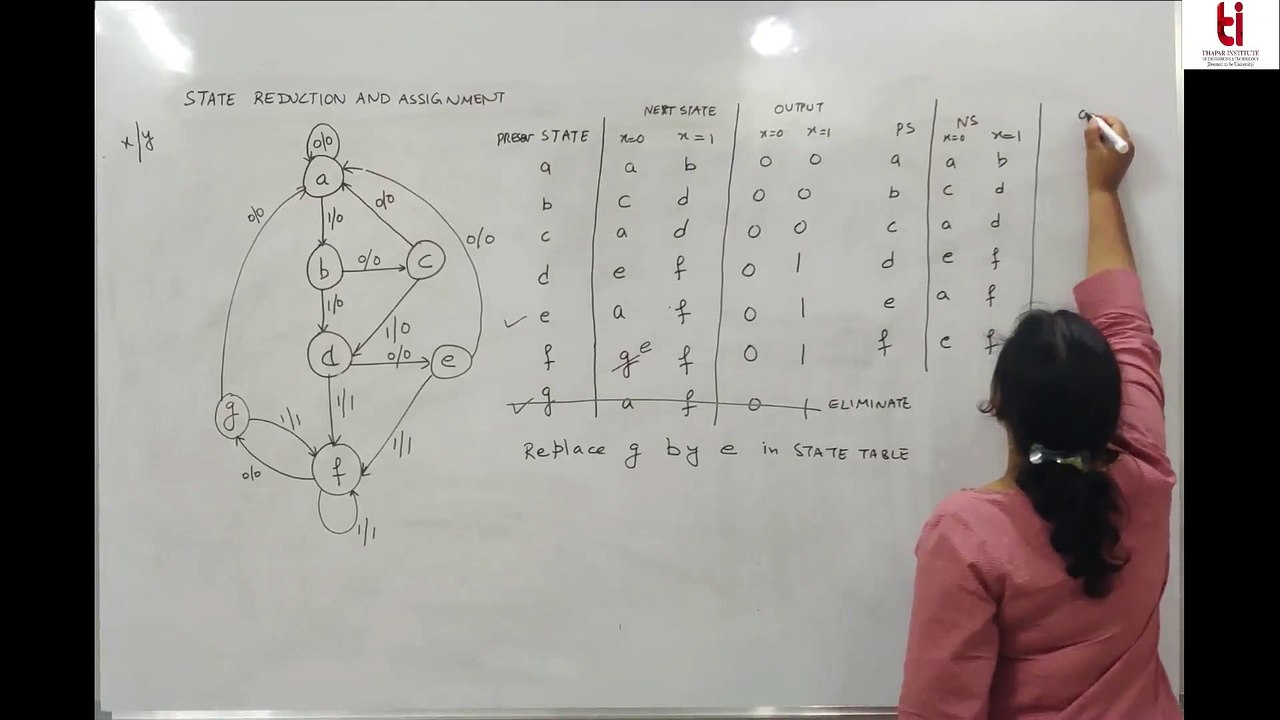 ti
THAPAR INSTITUTE
OF ENGINEERING & TECHNOLOGY
(Deemed to be University)
STATE REDUCTION AND ASSIGNMENT
x/y
0/0
a
0/0
0/0
1/0
0/0
b
0/0
c
1/0
1/0
d
0/0
e
g
1/1
1/1
1/1
0/0
f
1/1
PRESENT STATE NEXT STATE OUTPUT
x=0 x=1 x=0 x=1
a a b 0 0
b c d 0 0
c a d 0 0
d e f 0 1
✓ e a f 0 1
f g e f 0 1
✓ g a f 0 1 ELIMINATE
Replace g by e in STATE TABLE
PS NS
x=0 x=1
a a b
b c d
c a d
d e f
e a f
f e f